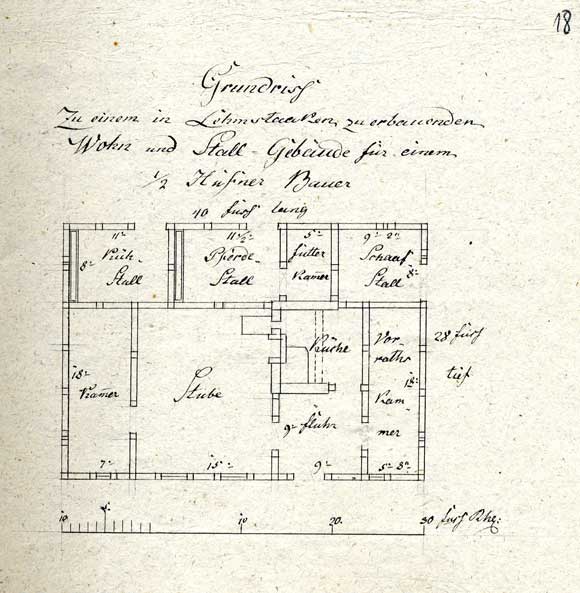 18
Grundriss
Zu einem in Lehmstaaken zu erbauenden
Wohn und Stall-Gebäude für einem
1/2 Hüfner Bauer
40 fuss lang
11'
Küh-
Stall
8'
11 1/2'
Pferde-
Stall
5'
futter
Kamer
9' 2"
Schaaf
Stall
8'
18'
Kamer
7'
Stube
15'
Küche
9' fluhr
9'
Vor-
raths
18'
Kam-
mer
5' 8"
28 fuss
tief
10 5 10 20 30 fuss Rhg: